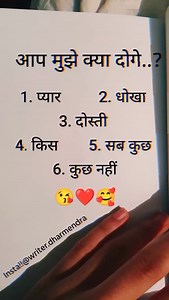 आप मुझे क्या दोगे..?
1. प्यार 2. धोखा
3. दोस्ती
4. किस 5. सब कुछ
6. कुछ नहीं
😘❤️🥰
Install@writer.dharmendra